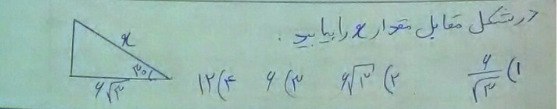 در شکل مقابل مقدار x را بیابید.
x
۳۰
۶√۳
۱) ۶/√۳ ۲) ۶√۳ ۳) ۶ ۴) ۱۲